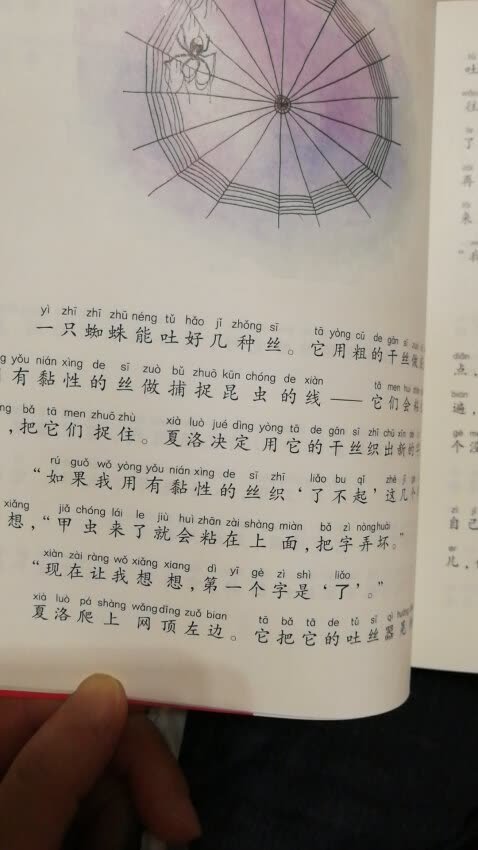 yì zhī zhī zhū néng tǔ hǎo jǐ zhǒng sī tā yòng cū de gān sī
一只蜘蛛能吐好几种丝。它用粗的干丝做
yǒu nián xìng de sī zuò bǔ zhuō kūn chóng de xiàn tā men huì
有黏性的丝做捕捉昆虫的线——它们会粘
bǎ tā men zhuō zhù xià luò jué dìng yòng tā de gān sī zhī chū xīn de
，把它们捉住。夏洛决定用它的干丝织出新的
rú guǒ wǒ yòng yǒu nián xìng de sī zhī liǎo bu qǐ zhè jǐ
“如果我用有黏性的丝织‘了不起’这几个
xiǎng jiǎ chóng lái le jiù huì zhān zài shàng miàn bǎ zì nòng huài
想，“甲虫来了就会粘在上面，把字弄坏。”
xiàn zài ràng wǒ xiǎng xiang dì yī gè zì shì liǎo
“现在让我想想，第一个字是‘了’。”
xià luò pá shàng wǎng dǐng zuǒ bian tā bǎ tā de tǔ sī qì
夏洛爬上网顶左边。它把它的吐丝器
吐
往
了
再
来
diǎn
点，
biàn
遍，
gè
个没
zì jǐ
自己
ér
儿，